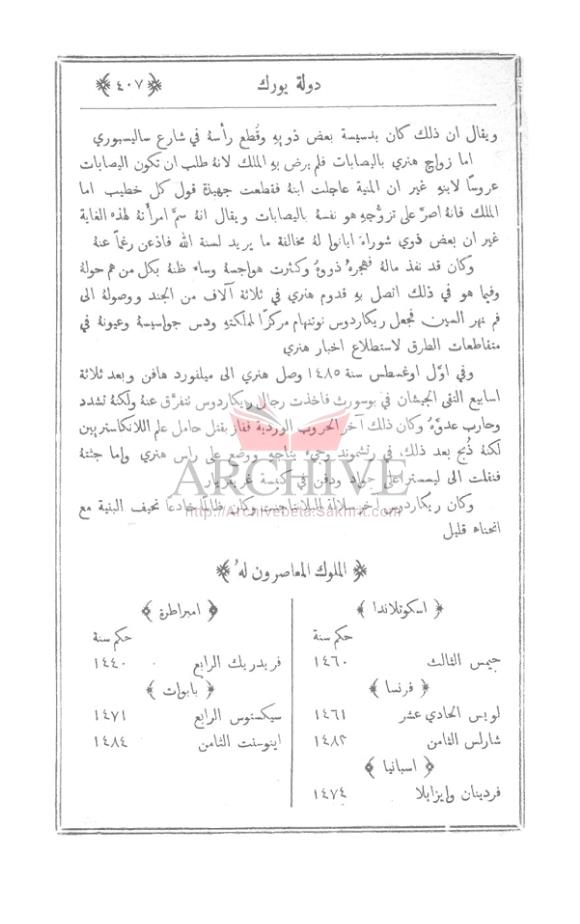 دولة يورك ﴿٤٠٧﴾
ويقال ان ذلك كان بدسيسة بعض ذويهِ وقُطع رأسهُ في شارع ساليسبوري
اما زواج هنري باليصابات فلم يرضَ بهِ الملك لانهُ طلب ان تكون اليصابات
عروسًا لابنهِ غير ان المنية عاجلت ابنهُ فقطعت جهيزة قول كل خطيب اما
الملك فانهُ اصرَّ على تزوُّجهِ هو نفسهُ باليصابات ويقال انهُ سمَّ امرأتهُ لهذه الغاية
غير ان بعض ذوي شوراهُ ابانوا لهُ مخالفة ما يريد لسنة الله فاذعن رغمًا عنهُ
وكان قد نفذ مالهُ فهجرهُ ذووهُ وكثرت هواجسهُ وساء ظنهُ بكل من هم حولهُ
وفيما هو في ذلك اتصل بهِ قدوم هنري في ثلاثة آلاف من الجند ووصولهُ الى
فم نهر السين فجعل ريكاردوس نوتنهام مركزًا لمملكتهِ ودس جواسيسهُ وعيونهُ في
متقاطعات الطرق لاستطلاع اخبار هنري
وفي اوّل اوغسطس سنة ١٤٨٥ وصل هنري الى ميلفورد هافن وبعد ثلاثة
اسابيع التقى الجيشان في بوسورث فاخذت رجال ريكاردوس تتفرَّق عنهُ ولكنهُ تشدد
وحارب عدوَّهُ وكان ذلك آخر الحروب الوردية ففاز بقتل حامل علم اللانكاستريين
لكنهُ ذُبح بعد ذلك في رتشموند وجيء بتاجهِ ووضع على راس هنري واما جثتهُ
فنقلت الى ليسستر على جواد ودفن في كنيسة غريفريار
وكان ريكاردوس اخر سلالة البلانتاجنت وكان ظالمًا خادعًا نحيف البنية مع
انحناء قليل
ARCHIVE
http://Archivebeta.Sakhrit.com
﴿ الملوك المعاصرون لهُ ﴾
﴿ اسكوتلاندا ﴾
حكم سنة
جيمس الثالث ١٤٦٠
﴿ فرنسا ﴾
لويس الحادي عشر ١٤٦١
شارلس الثامن ١٤٨٣
﴿ اسبانيا ﴾
فردينان وايزابلا ١٤٧٤
﴿ امبراطرة ﴾
حكم سنة
فريدريك الرابع ١٤٤٠
﴿ بابوات ﴾
سيكستوس الرابع ١٤٧١
اينوسنت الثامن ١٤٨٤